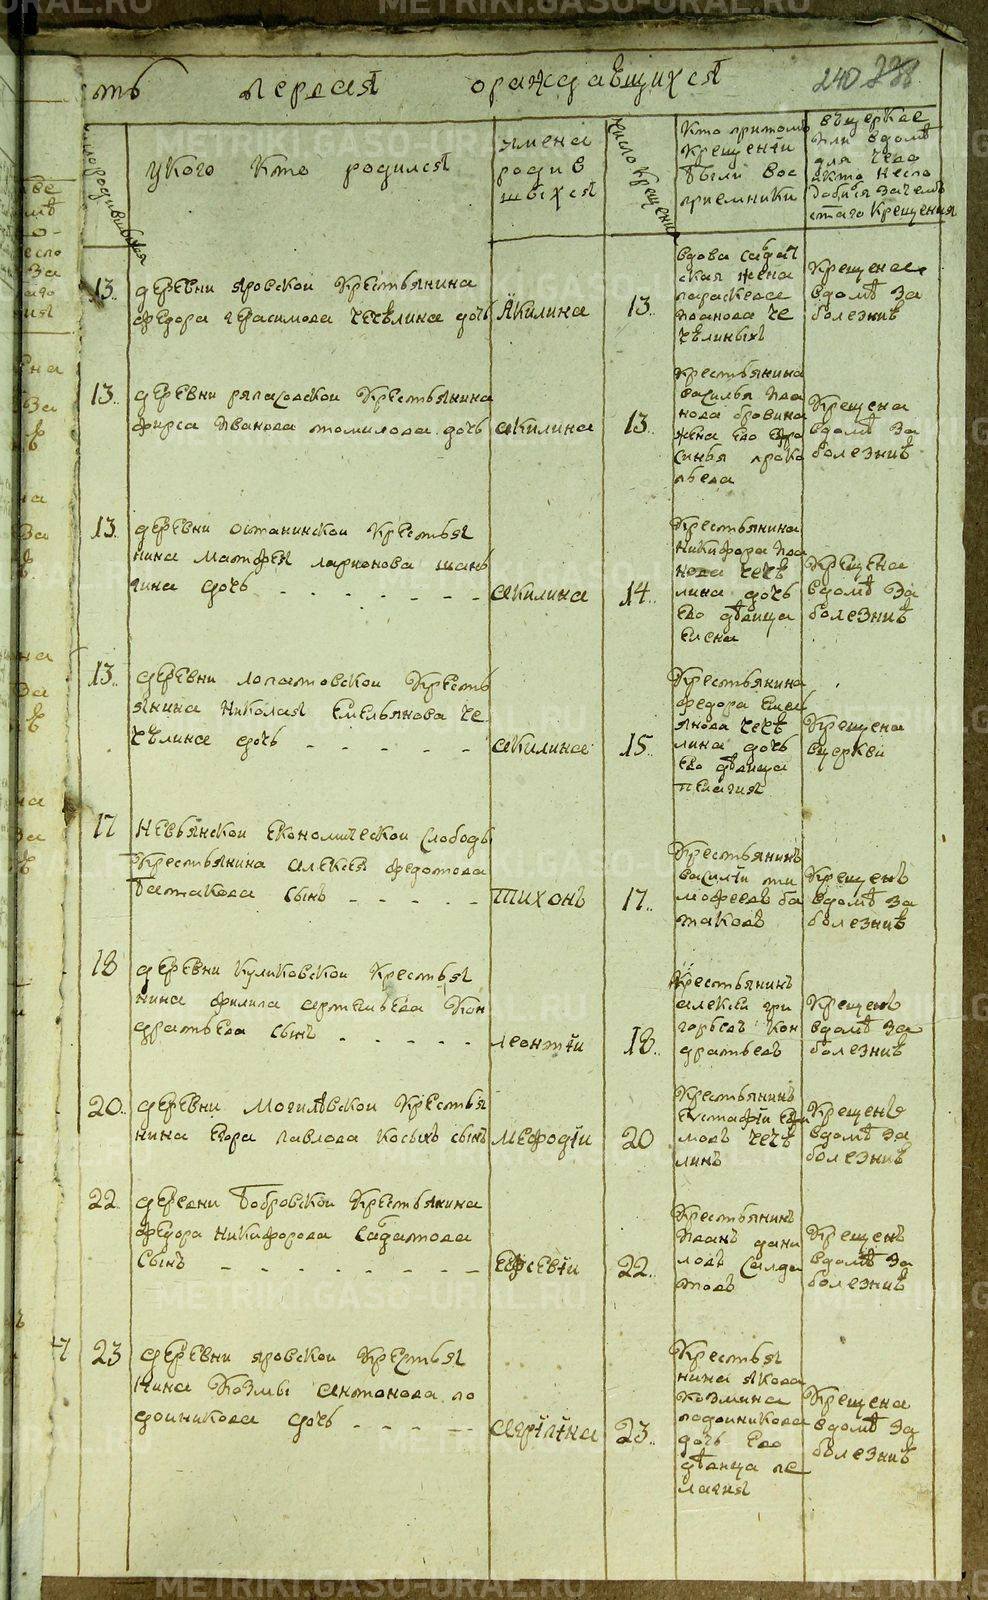 ть первая ораждавщихся
240
число родившихся
укого кто родился
имена
родив
шихся
число крещения
кто притомъ
крещенïи
были вос
приемники
въцеркве
или вдомѣ
для чего
икто неспо
добися зачемъ
стаго крещения
13. деревни яровской крестьянина
федора герасимова чечѣлина дочь
Акилина
13.
вдова салдат
ская жена
параскева
иванова че
чѣлиныхъ
крещена
вдомѣ за
болезниѣ
13. деревни ряпасовской крестьянина
фирса иванова томилова дочь
акилина
13.
крестьянина
василья ива
нова бровина
жена его ефро
синья проко
пьева
крещена
вдомѣ за
болезниѣ
13 деревни останинской крестья
нина матфея ларионова шань
гина дочь
акилина
14.
крестьянина
никифора ива
нова чечѣ
лина дочь
его дѣвица
елена
крещена
вдомѣ за
болезниѣ
13. деревни лопатовской кресть
янина николая емельянова че
чѣлина дочь
акилина
15.
крестьянина
федора емел
янова чечѣ
лина дочь
его дѣвица
пелагия
крещена
вцеркви
17 невьянской економической слободы
крестьянина алексея федотова
батакова сынъ
тихонъ
17.
крестьянинъ
василïи ти
мофеевъ ба
таковъ
крещенъ
вдомѣ за
болезниѣ
18 деревни куликовской крестья
нина филипа артемьева кон
дратьева сынъ
леонтïи
18.
крестьянинъ
алексеи гри
горьевъ кон
дратьевъ
крещенъ
вдомѣ за
болезниѣ
20. деревни могилѣвской крестья
нина егора павлова косыхъ сынъ
мефодïи
20
крестьянинъ
евстафïи
мовъ чечѣ
линъ
крещенъ
вдомѣ за
болезниѣ
22. деревни бобровской крестьянина
федора никифорова
сынъ
евсевïи
22.
крестьянинъ
иванъ дани
ловъ салда
товъ
крещенъ
вдомѣ за
болезниѣ
23 деревни яровской крестья
нина козмы антонова по
доиникова дочь
агрïпïна
23.
крестья
нина якова
козмина
подоиникова
дочь его
дѣвица пе
лагия
крещена
вдомѣ за
болезниѣ
METRIKI.GASO-URAL.RU